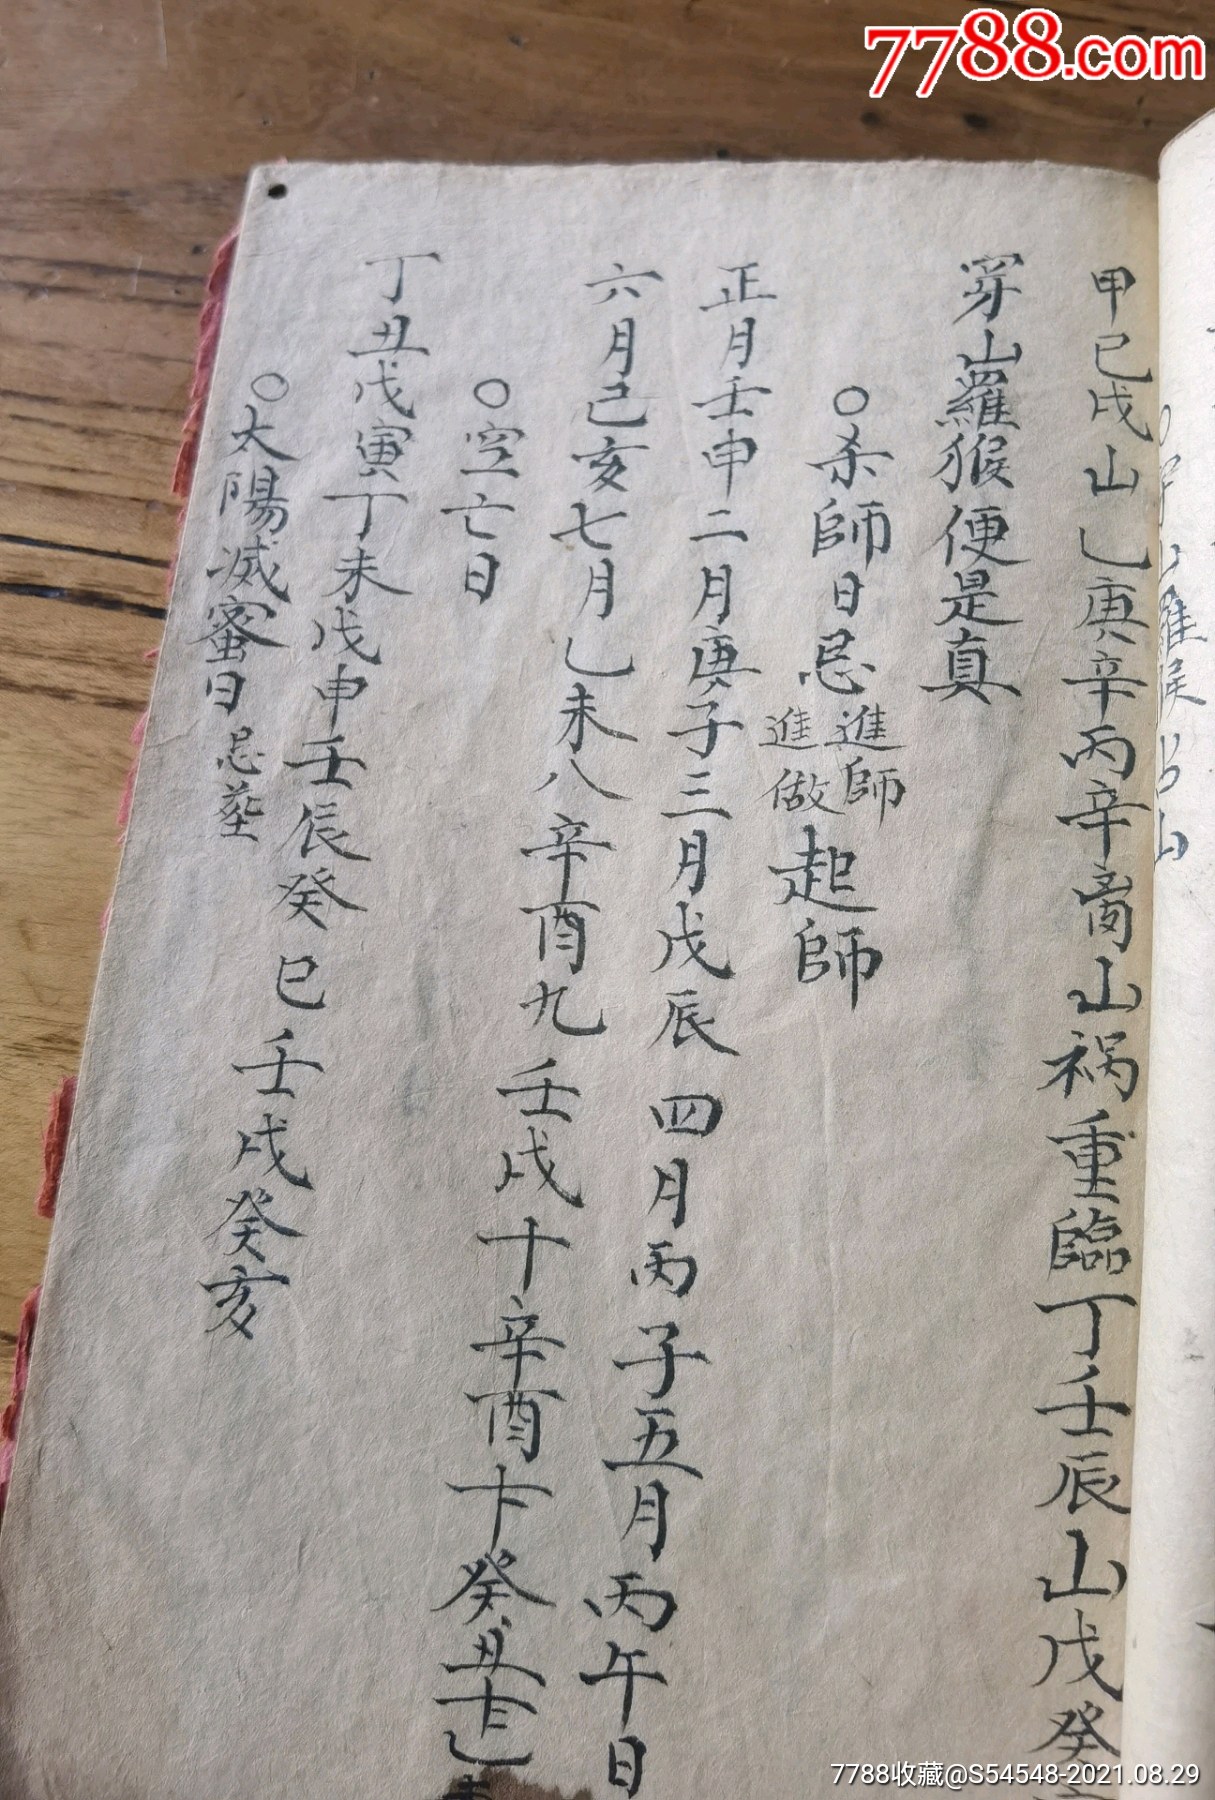 7788.com
甲己戌山乙庚辛丙辛离山祸重臨丁壬辰山戊癸
穿山羅猴便是真
○杀師日忌進師進做起師
正月壬申二月庚子三月戊辰四月丙子五月丙午日
六月己亥七月乙未八辛酉九壬戌十辛酉十一癸丑十二乙
○空亡日
丁丑戊寅丁未戊申壬辰癸巳壬戌癸亥
○太陽滅蜜日忌葬
7788收藏@S54548-2021.08.29